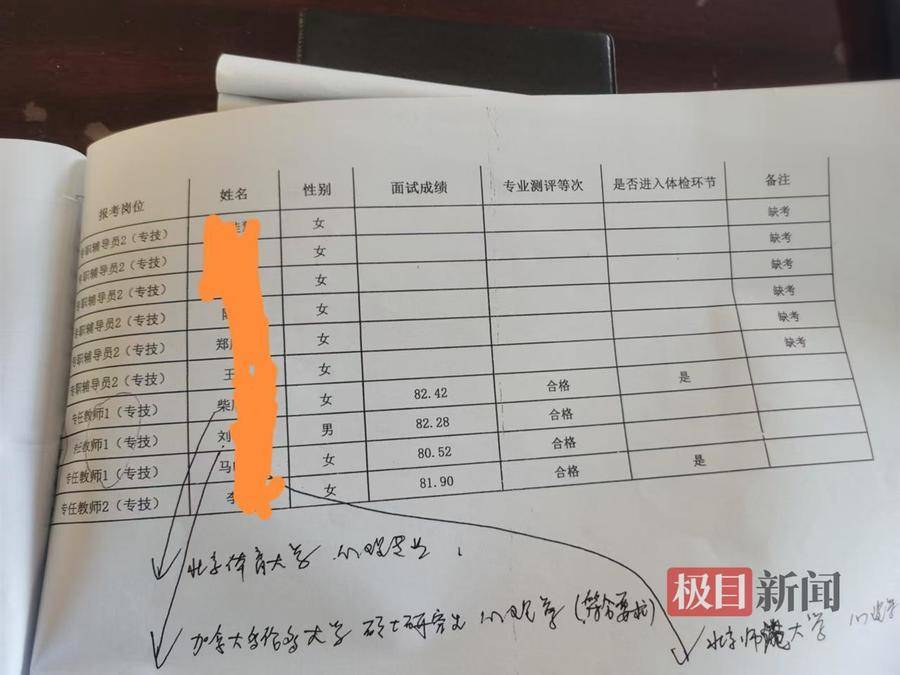 报考岗位 姓名 性别 面试成绩 专业测评等次 是否进入体检环节 备注
专职辅导员2（专技） 女 缺考
专职辅导员2（专技） 女 缺考
专职辅导员2（专技） 女 缺考
专职辅导员2（专技） 女 缺考
专职辅导员2（专技） 郑 女 缺考
专职辅导员2（专技） 王 女 缺考
专任教师1（专技） 柴 女 82.42 合格 是
任教师1（专技） 刘 男 82.28 合格
专任教师1（专技） 马 女 80.52 合格
专任教师2（专技） 李 女 81.90 合格 是
北京体育大学 心理专业
加拿大 大学 硕士研究生 心理学（符合要求）
北京师范大学 心理学
极目新闻